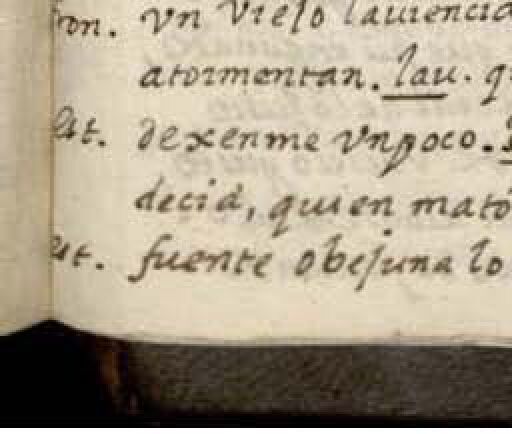 fron. vn viejo laurencia
atormentan. lau. q
Est. dexenme vn poco.
decid, quien mató
Est. fuente obejuna lo